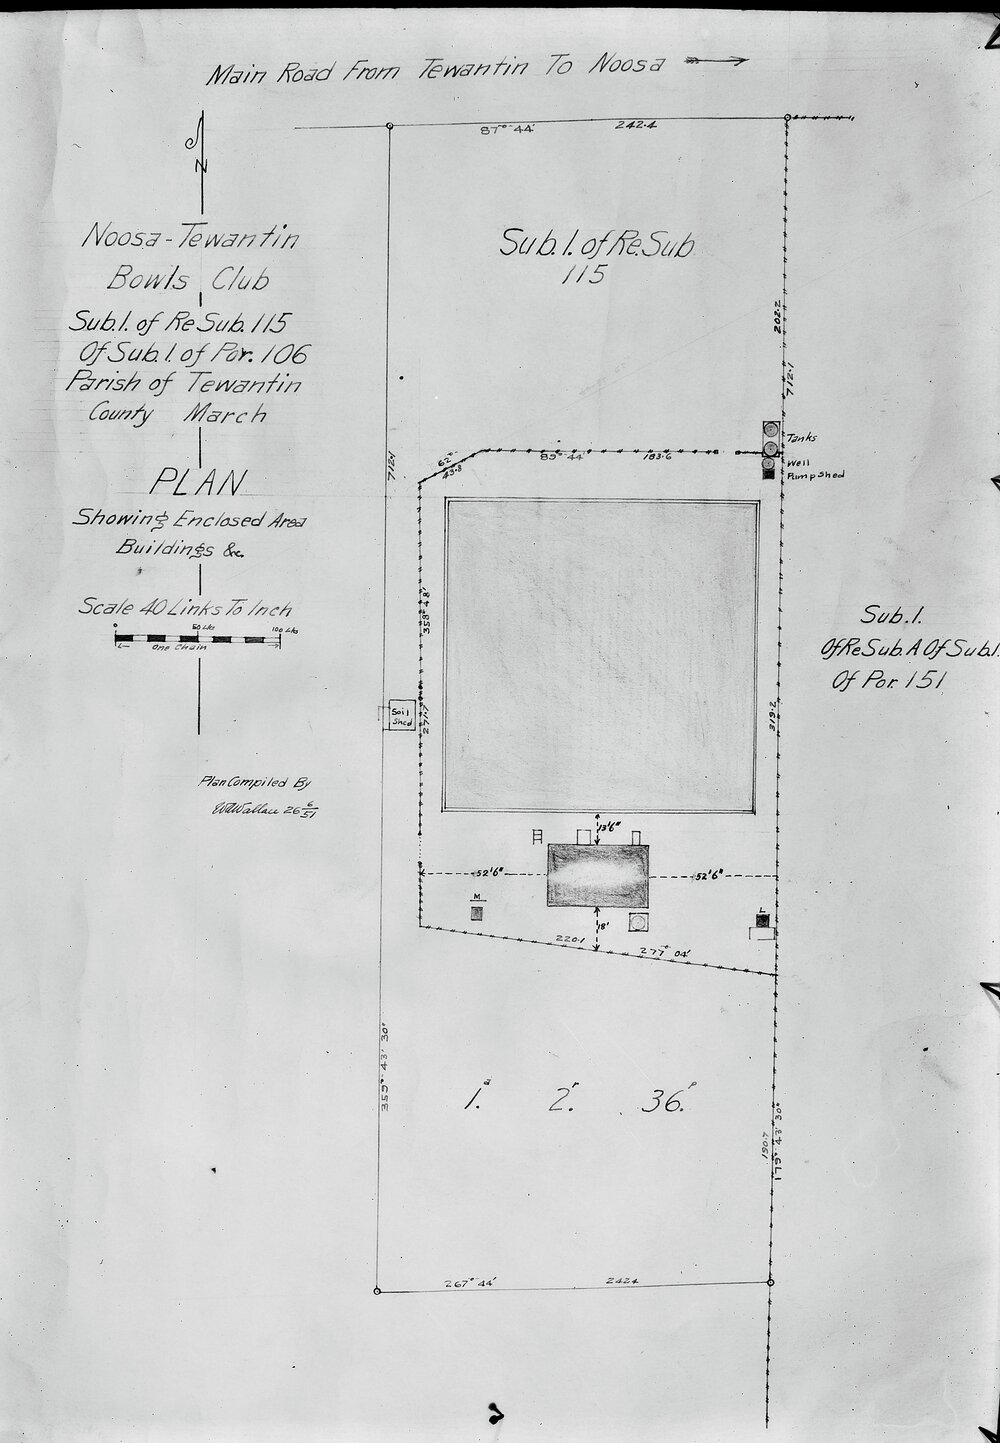 Main Road From Tewantin To Noosa
N
87° 44'
242.4
Noosa-Tewantin
Bowls Club
Sub.1. of Re Sub. 115
Of Sub.1. of Por. 106
Parish of Tewantin
County March
PLAN
Showing Enclosed Area
Buildings &c.
Scale 40 Links To Inch
0 50 Lks 100 Lks
One Chain
Plan Compiled By
W Wallace 26 6/51
Sub.1. of Re.Sub
115
202.2
712.1
712.1
62°
43.8
89° 44'
183.6
Tanks
Well
Pump Shed
358° 48'
271.7
Soil
Shed
319.2
Sub.1.
Of Re Sub. A Of Sub.1.
Of Por. 151
13'6"
52'6"
52'6"
M
L
18'
220.1
277° 04'
359° 43' 30"
1.a 2.r 36.p
190.7
179° 43' 30"
267° 44'
242.4